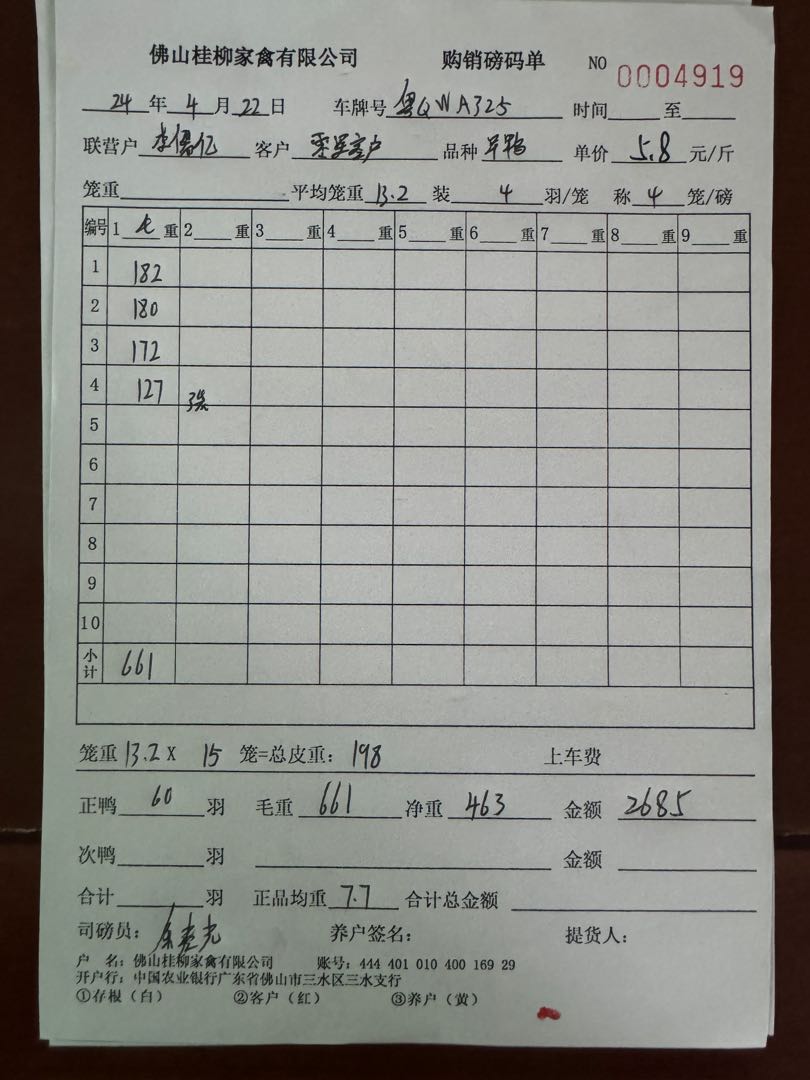 佛山桂柳家禽有限公司 购销磅码单 NO 0004919
24 年 4 月 22 日 车牌号 粤QWA325 时间 至
联营户 李儒亿 客户 客户 品种 单价 5.8 元/斤
笼重 平均笼重 13.2 装 4 羽/笼 称 4 笼/磅
编号 1 毛 重 2 重 3 重 4 重 5 重 6 重 7 重 8 重 9 重
1 182
2 180
3 172
4 127 3笼
5
6
7
8
9
10
小计 661
笼重 13.2 X 15 笼=总皮重: 198 上车费
正鸭 60 羽 毛重 661 净重 463 金额 2685
次鸭 羽 金额
合计 羽 正品均重 7.7 合计总金额
司磅员: 养户签名: 提货人:
户 名: 佛山桂柳家禽有限公司 账号: 444 401 010 400 169 29
开户行: 中国农业银行广东省佛山市三水区三水支行
①存根（白） ②客户（红） ③养户（黄）